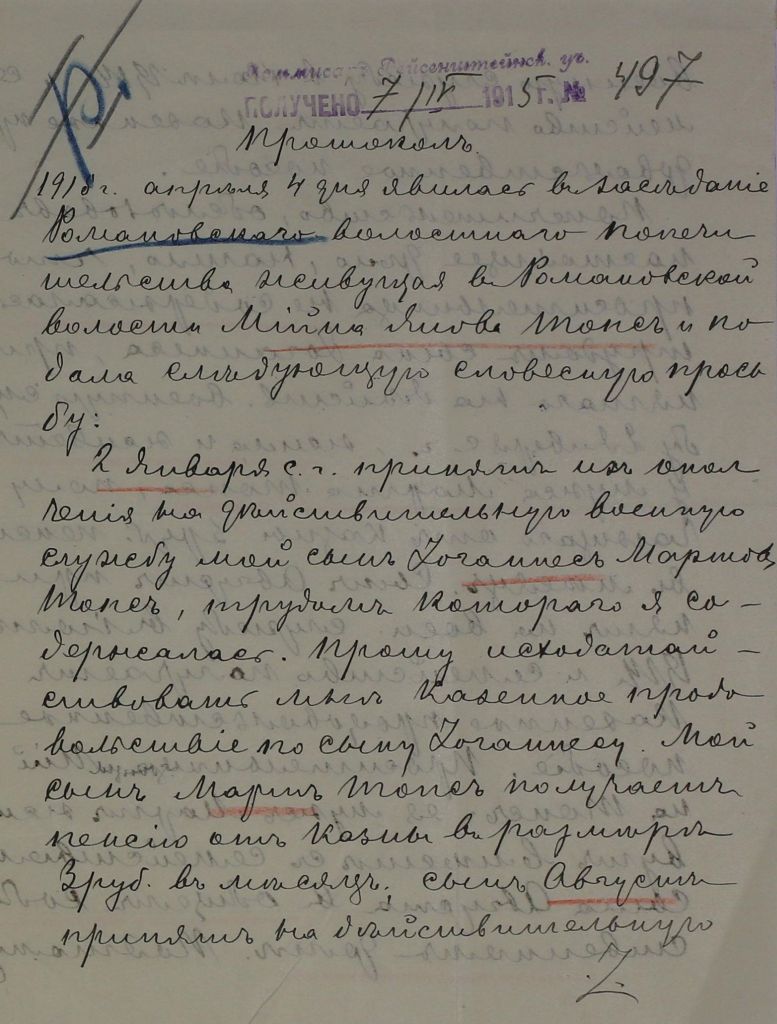 Коммисаръ Гейсенштейнск. уч.
ПОЛУЧЕНО 7/IV 1915 г. № 497
Протоколъ.
1915 г. апрѣля 4 дня явилась въ засѣданіе
Романовскаго волостнаго попечи
тельства живущая въ Романовской
волости Мійна Янова Топсъ и по
дала слѣдующую словесную прось
бу:
2 Января с. г. принятъ изъ опол
ченія на дѣйствительную военную
службу мой сынъ Іоганнесъ Мартовъ
Топсъ, трудомъ котораго я со-
держалась. Прошу исходатай-
ствовать мнѣ казенное продо
вольствіе по сыну Іоганнесу. Мой
сынъ Мартъ Топсъ получаетъ
пенсію отъ казны въ размѣрѣ
3 руб. въ мѣсяцъ; сынъ Августъ
принятъ на дѣйствительную